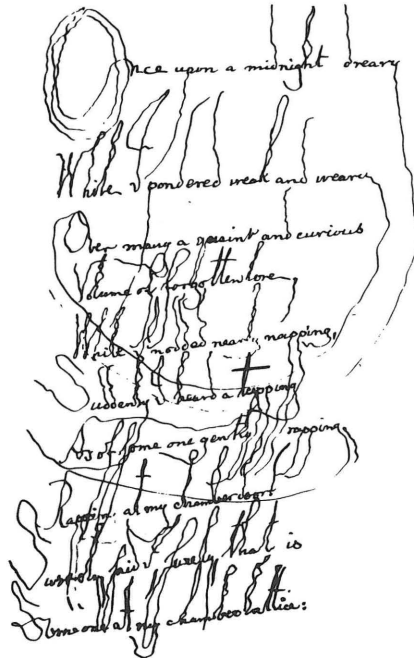 Once upon a midnight dreary
While I pondered weak and weary
Over many a quaint and curious
Volume of forgotten lore,
While I nodded nearly napping,
Suddenly I heard a tapping
As of some one gently rapping,
Rapping at my chamber door.
Surely said I surely that is
Someone at my chamber lattice: